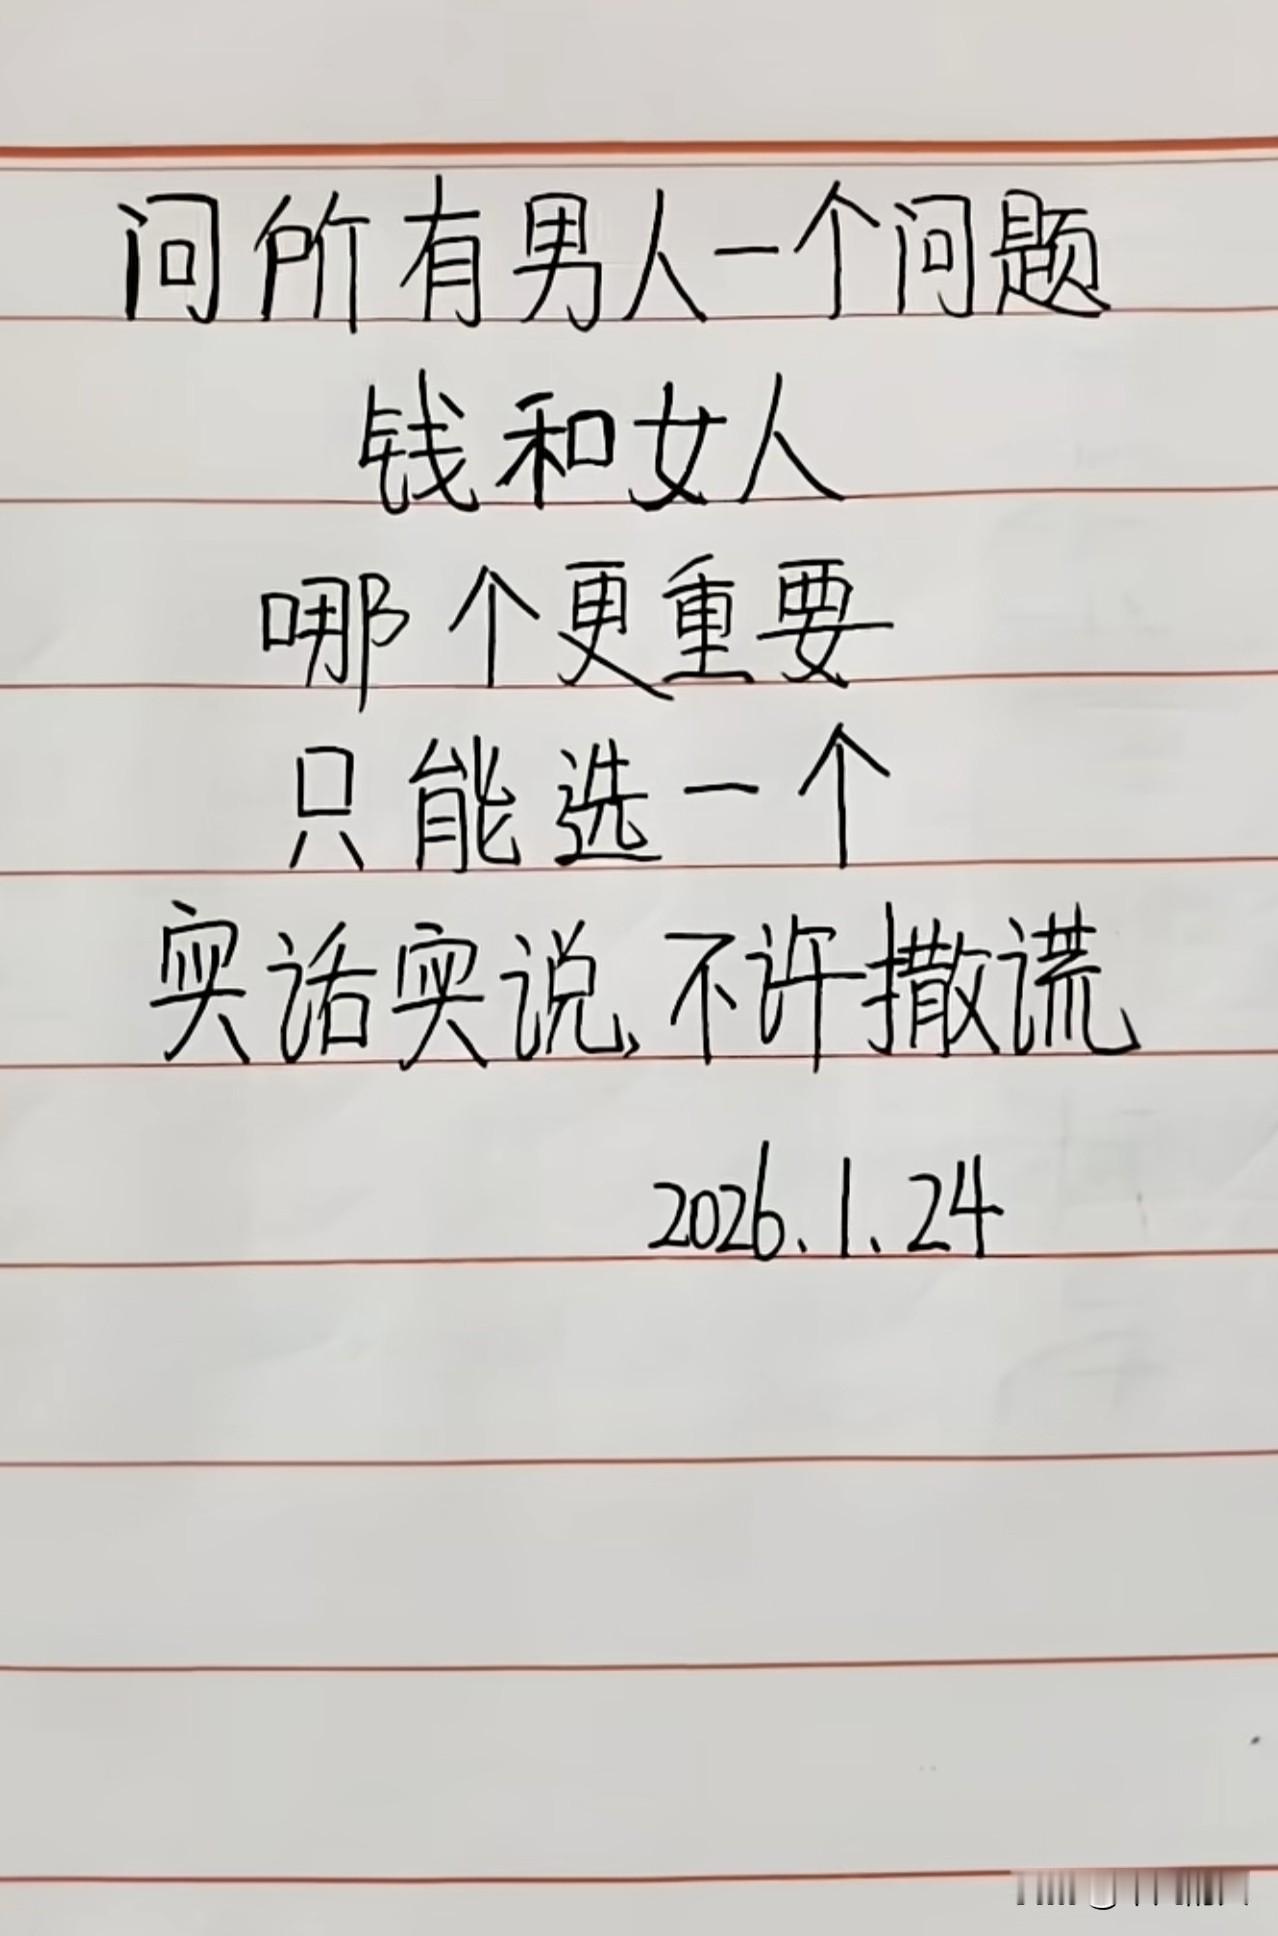 问所有男人一个问题
钱和女人
哪个更重要
只能选一个
实话实说、不许撒谎
2026.1.24